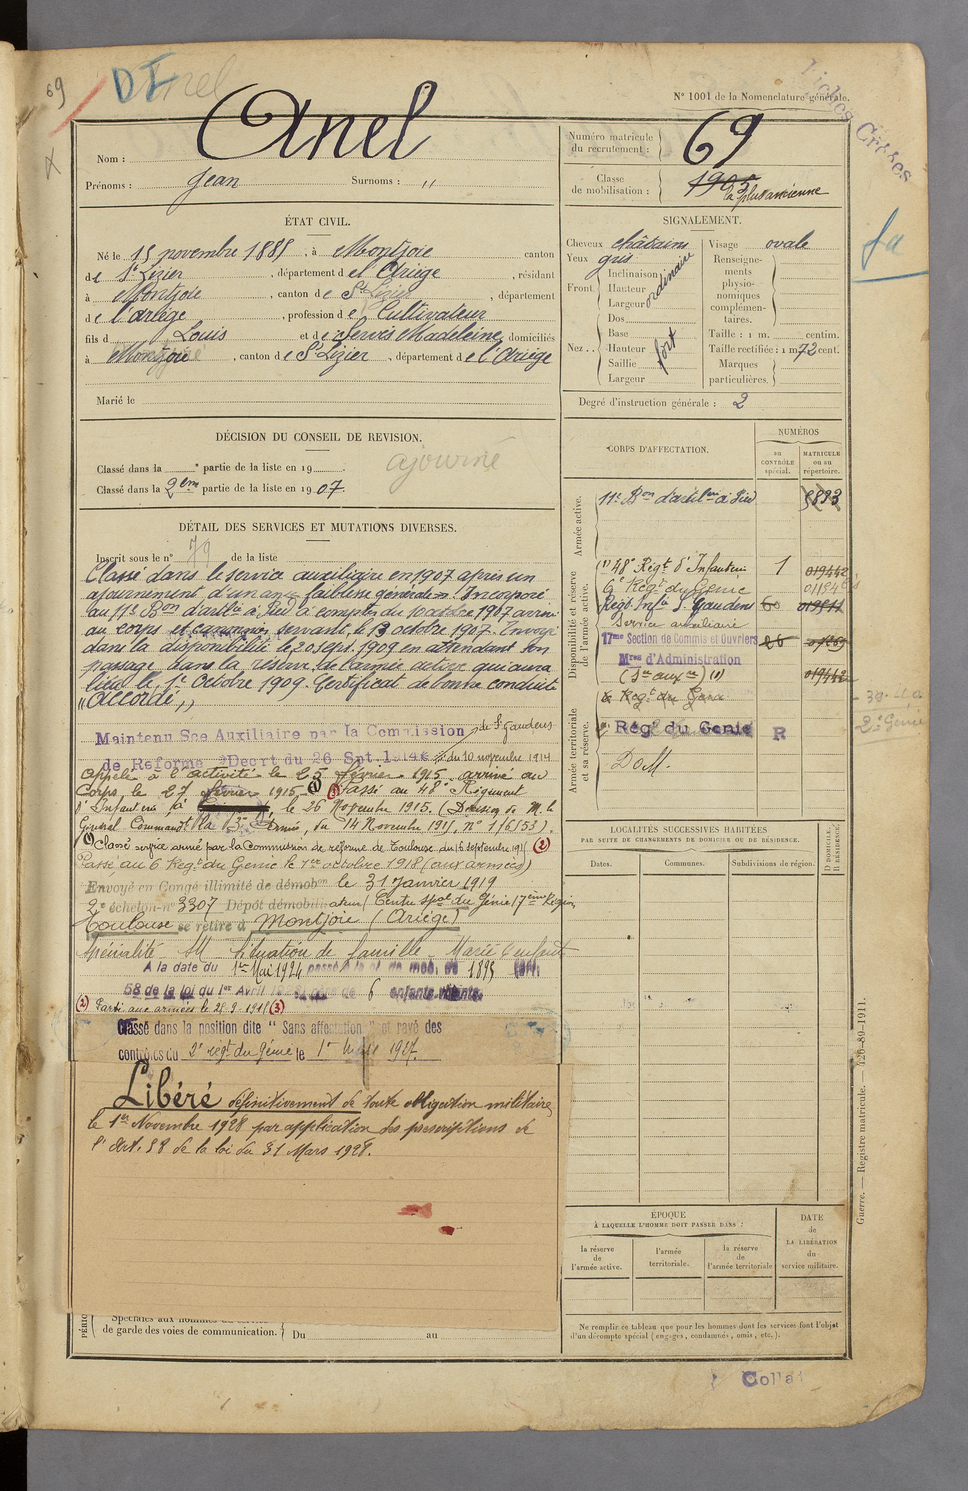 69
DF
Anel
N° 1001 de la Nomenclature générale.
Fiches Créées
Nom : Anel
Prénoms : Jean Surnoms : "
Numéro matricule du recrutement : 69
Classe de mobilisation : 1905
la plus ancienne
ÉTAT CIVIL.
Né le 15 novembre 1885, à Montjoie canton
de St Lizier, département de l'Ariège, résidant
à Montjoie, canton de St Lizier, département
de l'Ariège, profession de Cultivateur
fils de Louis et de Servès Madeleine, domiciliés
à Montjoie, canton de St Lizier, département de l'Ariège
Marié le
SIGNALEMENT.
Cheveux châtains
Yeux gris
Front. Inclinaison
Hauteur
Largeur
ordinaire
Nez.. Dos
Base
Hauteur
Saillie
Largeur
fort
Visage ovale
Renseigne-
ments
physio-
nomiques
complémen-
taires.
Taille : 1 m. centim.
Taille rectifiée : 1 m 72 cent.
Marques
particulières.
Degré d'instruction générale : 2
DÉCISION DU CONSEIL DE REVISION.
Classé dans la e partie de la liste en 19 .
ajourné
Classé dans la 2em partie de la liste en 1907.
DÉTAIL DES SERVICES ET MUTATIONS DIVERSES.
Inscrit sous le n° 79 de la liste
Classé dans le service auxiliaire en 1907 après un
ajournement d'un an faiblesse générale. Incorporé
au 11e Bon d'artie à Pied à compter du 10 octobre 1907 arrivé
au corps et canonnier servant, le 13 octobre 1907. Envoyé
dans la disponibilité le 20 sept. 1909 en attendant son
passage dans la réserve de l'armée active qui aura
lieu le 1er Octobre 1909. Certificat de bonne conduite
"Accordé"
Maintenu Sce Auxiliaire par la Commission de St Gaudens
de Réforme Decrt du 26 Spt. 1914 du 10 novembre 1914
Appelé à l'activité le 25 février 1915 arrivé au
Corps le 27 février 1915. (1) (2) Passé au 48e Régiment
d'Infanterie à , le 26 Novembre 1915. (Décision de M. le
Général Commandt la Armée, du 14 Novembre 1915, n°
(1) Classé service armé par la Commission de réforme de Toulouse du 16 septembre 1915 (2)
Passé au 6 Regt du Genie le 1er octobre 1918 (aux armées)
Envoyé en Congé illimité de démobon le 31 Janvier 1919
2e échelon n° 3307 Dépôt démobilisateur Centre spal du Génie 17ème Région
Toulouse se retire à Montjoie (Ariège)
Spécialité SM Situation de famille Marié enfants
A la date du 1er Mai 1924 passé à la cl. de mob. de 1893 (art.
58 de la loi du 1er Avril père de 6 enfants vivants.
(2) Parti aux armées le (3)
Classé dans la position dite " Sans affectation " et rayé des
contrôles du 2e régt du Génie le 1er 1927.
Libéré définitivement de toute obligation militaire
le 1er Novembre 1928 par application des prescriptions de
l'Art. 58 de la loi du 31 Mars 1928.
Spéciales aux hommes du service
de garde des voies de communication. Du au
CORPS D'AFFECTATION.
NUMÉROS
au CONTRÔLE spécial.
MATRICULE ou au répertoire.
Armée active.
11e Bon d'artillerie à Pied 5893
Disponibilité et réserve de l'armée active.
(1) 48e Régt d'Infanterie 1 019442
6e Regt du Genie
Régt Infie St Gaudens
Service auxiliaire
17me Section de Commis et Ouvriers
Mres d'Administration
(Sce auxre) (1) 019442
Armée territoriale et sa réserve.
2e Regt du Genie
2e Rég du Genie R
DoM.
2e Génie
LOCALITÉS SUCCESSIVES HABITÉES
PAR SUITE DE CHANGEMENTS DE DOMICILE OU DE RÉSIDENCE.
Dates. Communes. Subdivisions de région.
D. DOMICILE. R. RÉSIDENCE.
ÉPOQUE
À LAQUELLE L'HOMME DOIT PASSER DANS :
la réserve de l'armée active.
l'armée territoriale.
la réserve de l'armée territoriale
DATE de LA LIBÉRATION du service militaire.
Ne remplir ce tableau que pour les hommes dont les services font l'objet
d'un décompte spécial (engagés, condamnés, omis, etc.).
Guerre. — Registre matricule. — 726-89-1911.